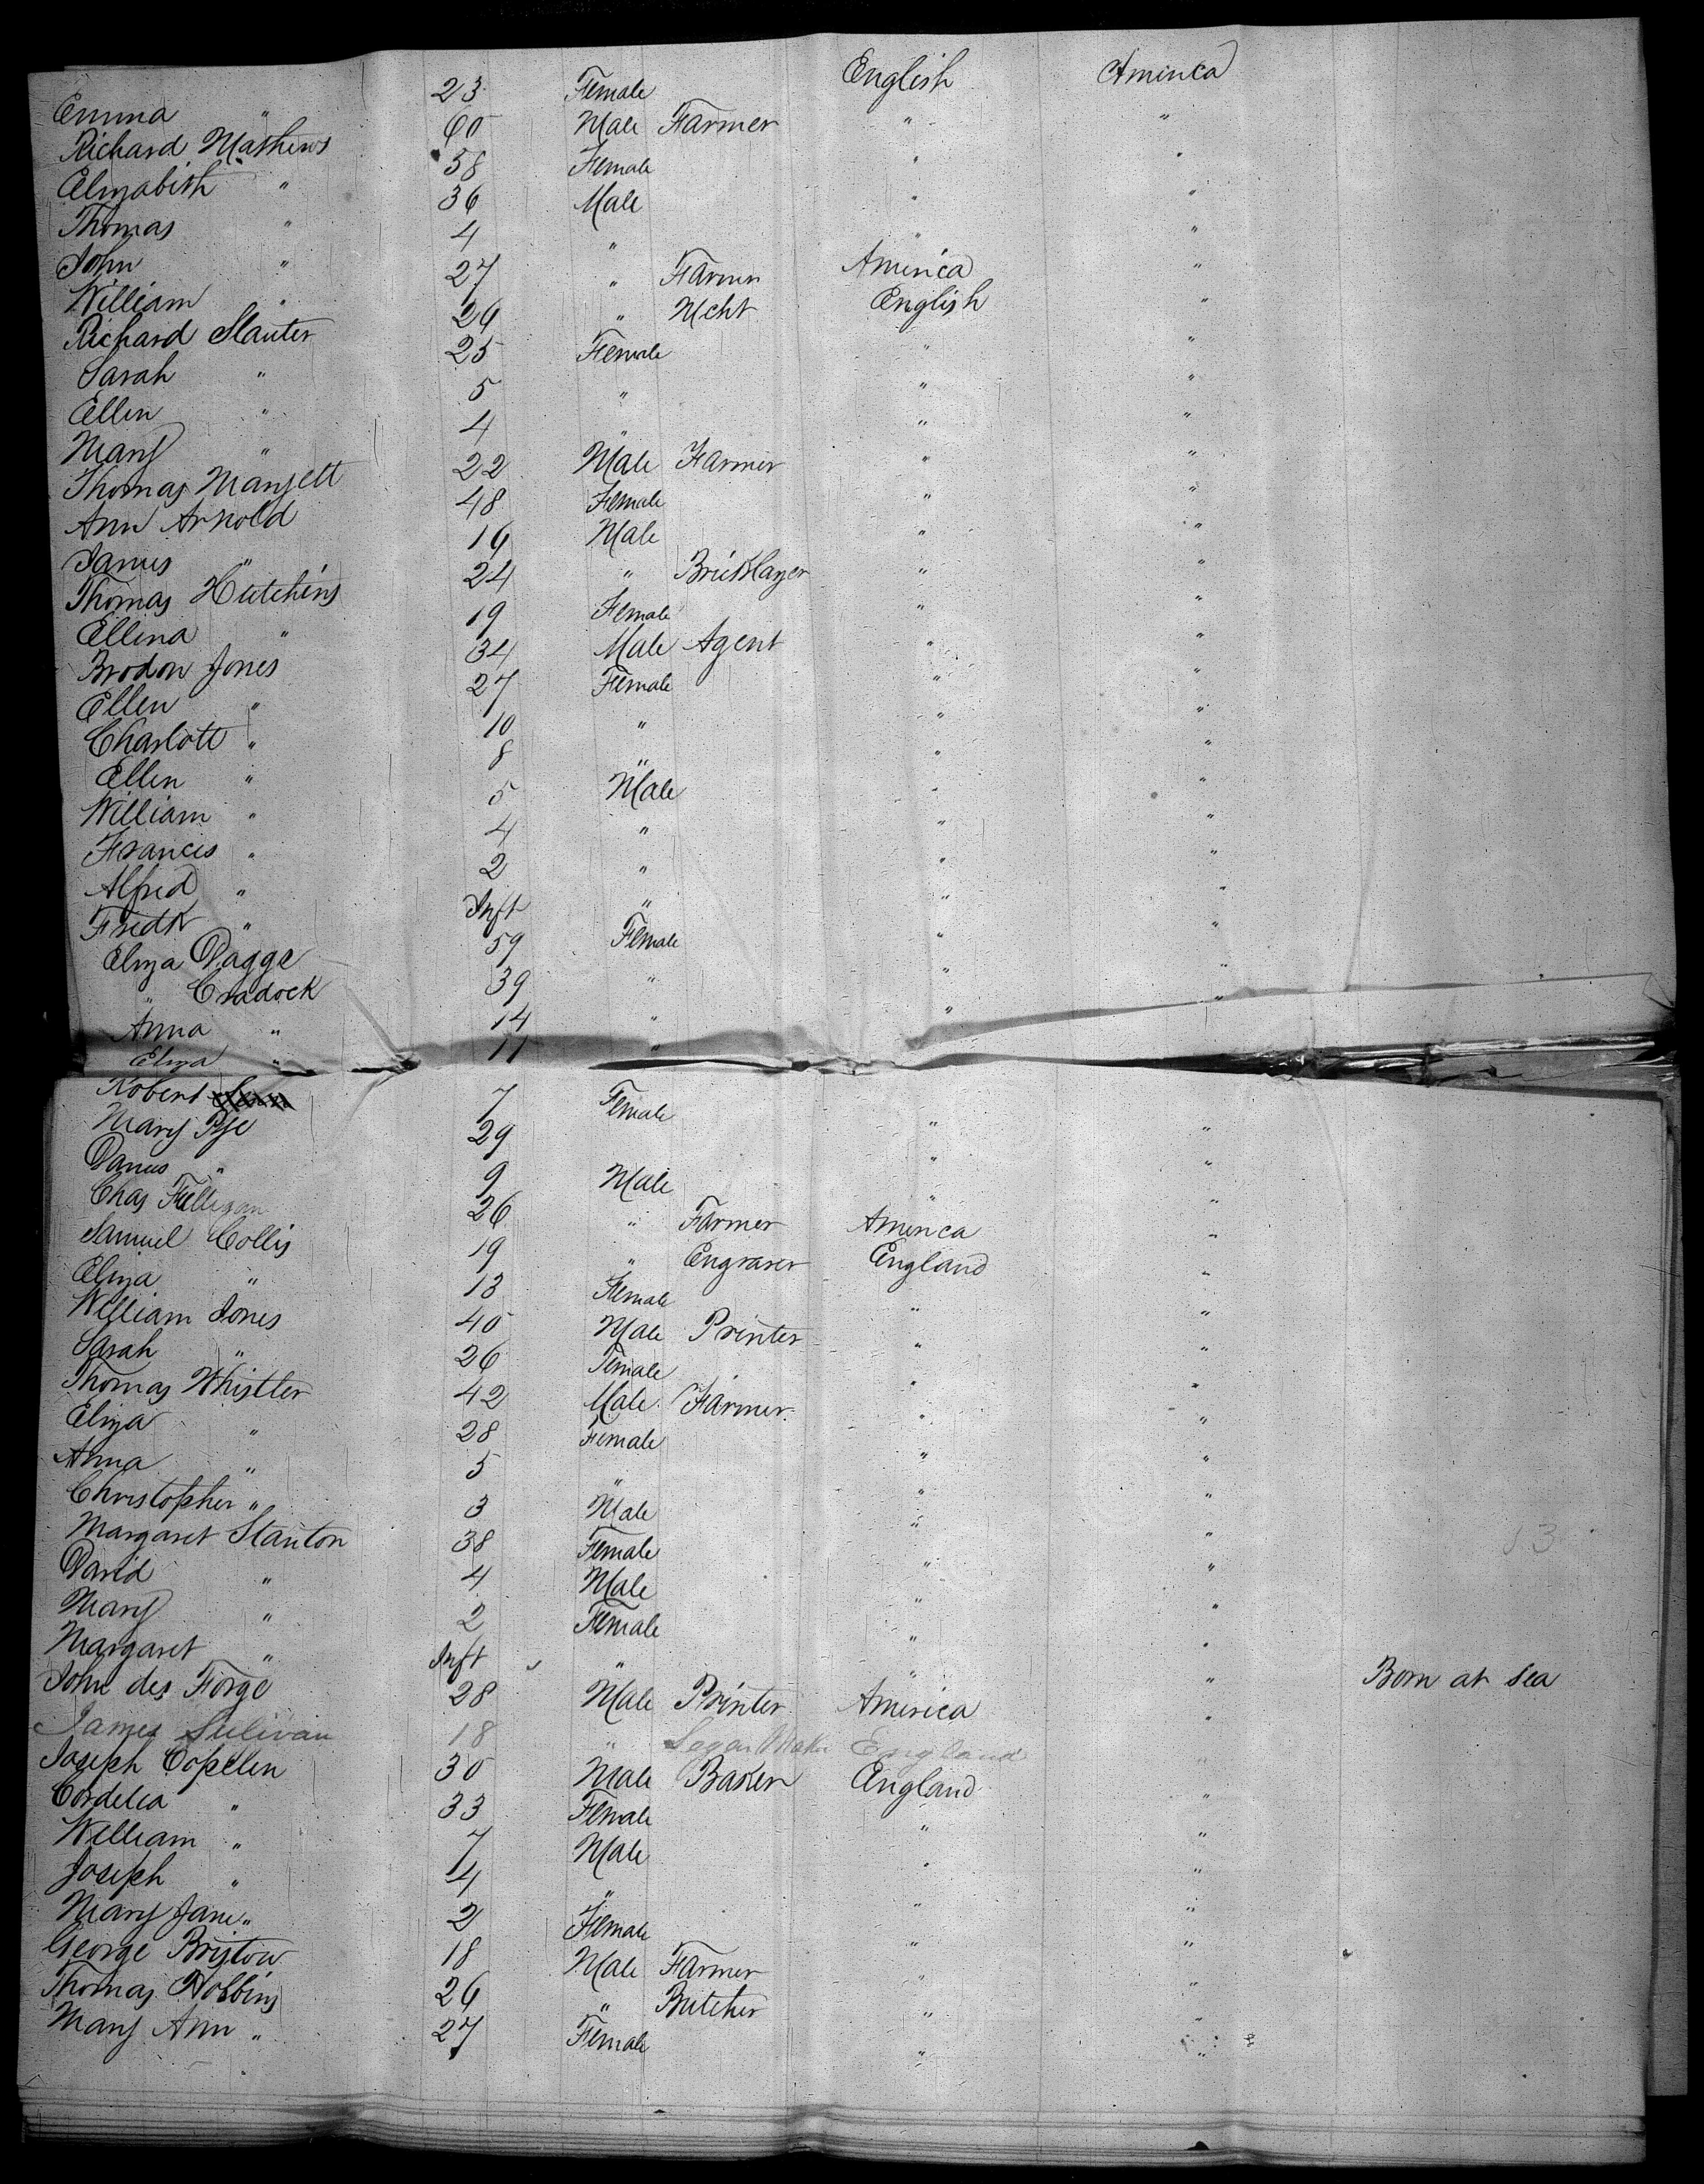 Emma " 23 Female English America
Richard Mathews 60 Male Farmer " "
Elizabeth " 58 Female " "
Thomas " 36 Male " "
John " 4 " " "
William " 27 " Farmer America "
Richard Slauter 29 " Mcht English "
Sarah " 25 Female " "
Ellen " 5 " " "
Mary " 4 " " "
Thomas Mansell 22 Male Farmer " "
Ann Arnold 48 Female " "
James " 19 Male " "
Thomas Hutchins 24 " Bricklayer " "
Ellena " 19 Female " "
Brodon Jones 34 Male Agent " "
Ellen " 27 Female " "
Charlott " 10 " " "
Ellen " 8 " " "
William " 5 Male " "
Francis " 4 " " "
Alfred " 2 " " "
Fredk " Inft " " "
Eliza Dagge 59 Female " "
" Cradock 39 " " "
Anna " 14 " " "
Eliza " 11 "
Robert 7 Female " "
Mary Pye 29 " "
James " 9 Male " "
Chas Felligan 26 " Farmer America "
Samuel Collis 19 " Engraver England "
Eliza " 13 Female " "
William Jones 40 Male Printer " "
Sarah " 26 Female " "
Thomas Whistler 42 Male Farmer " "
Eliza " 28 Female " "
Anna " 5 " " "
Christopher " 3 Male " "
Margaret Stanton 38 Female " "
David " 4 Male " "
Mary " 2 Female " "
Margaret " Inft " " " Born at sea
John des Forge 28 Male Printer America "
James Sulivan 18 " Segar Maker England "
Joseph Copelin 30 Male Baker England "
Cordelia " 33 Female " "
William " 7 Male " "
Joseph " 4 " " "
Mary Jane " 2 Female " "
George Bristow 18 Male Farmer " "
Thomas Hobbins 26 " Butcher " "
Mary Ann " 27 Female " "
13